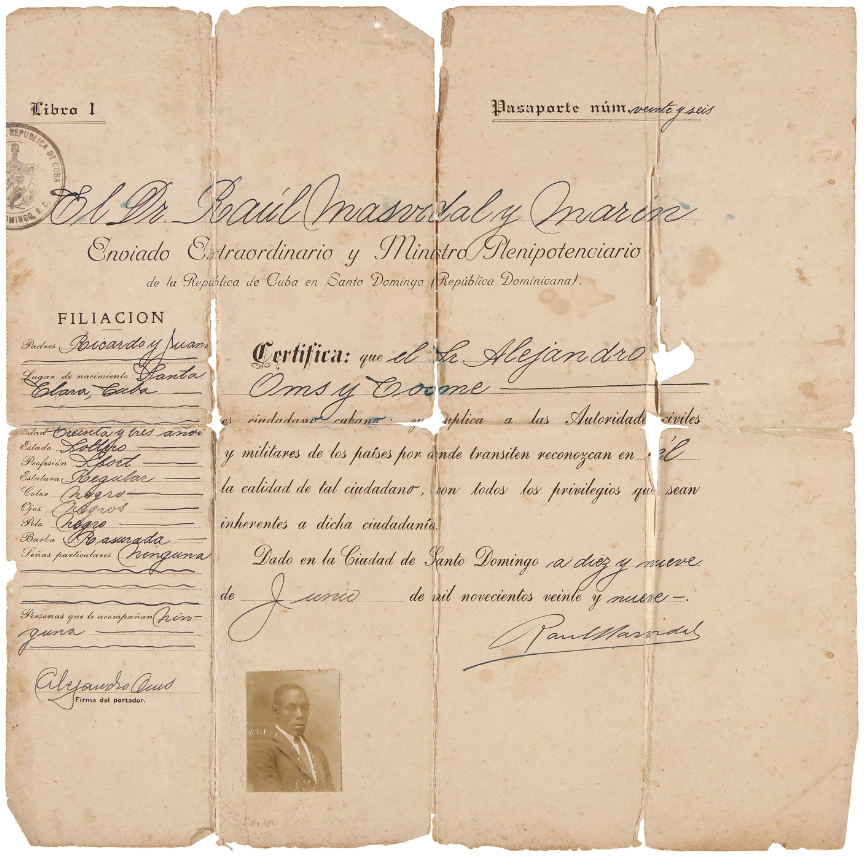 Libro I
Pasaporte núm. veinte y seis
REPUBLICA DE CUBA
El Dr. Raúl Masvidal y Marín
Enviado Extraordinario y Ministro Plenipotenciario
de la República de Cuba en Santo Domingo (República Dominicana).
FILIACION
Padres Ricardo y Juan
Lugar de nacimiento Santa
Clara, Cuba
Edad Treinta y tres años
Estado Soltero
Profesión Sport
Estatura Regular
Color negro
Ojos negros
Pelo negro
Barba Rasurada
Señas particulares ninguna
Personas que le acompañan nin-
guna
Alejandro Oms
Firma del portador.
Certifica: que el Sr. Alejandro
Oms y Cosme
es ciudadano cubano, y suplica a las Autoridades civiles
y militares de los países por donde transiten reconozcan en él
la calidad de tal ciudadano, con todos los privilegios que sean
inherentes a dicha ciudadanía.
Dado en la Ciudad de Santo Domingo a diez y nueve
de Junio de mil novecientos veinte y nueve.
Raul Masvidal